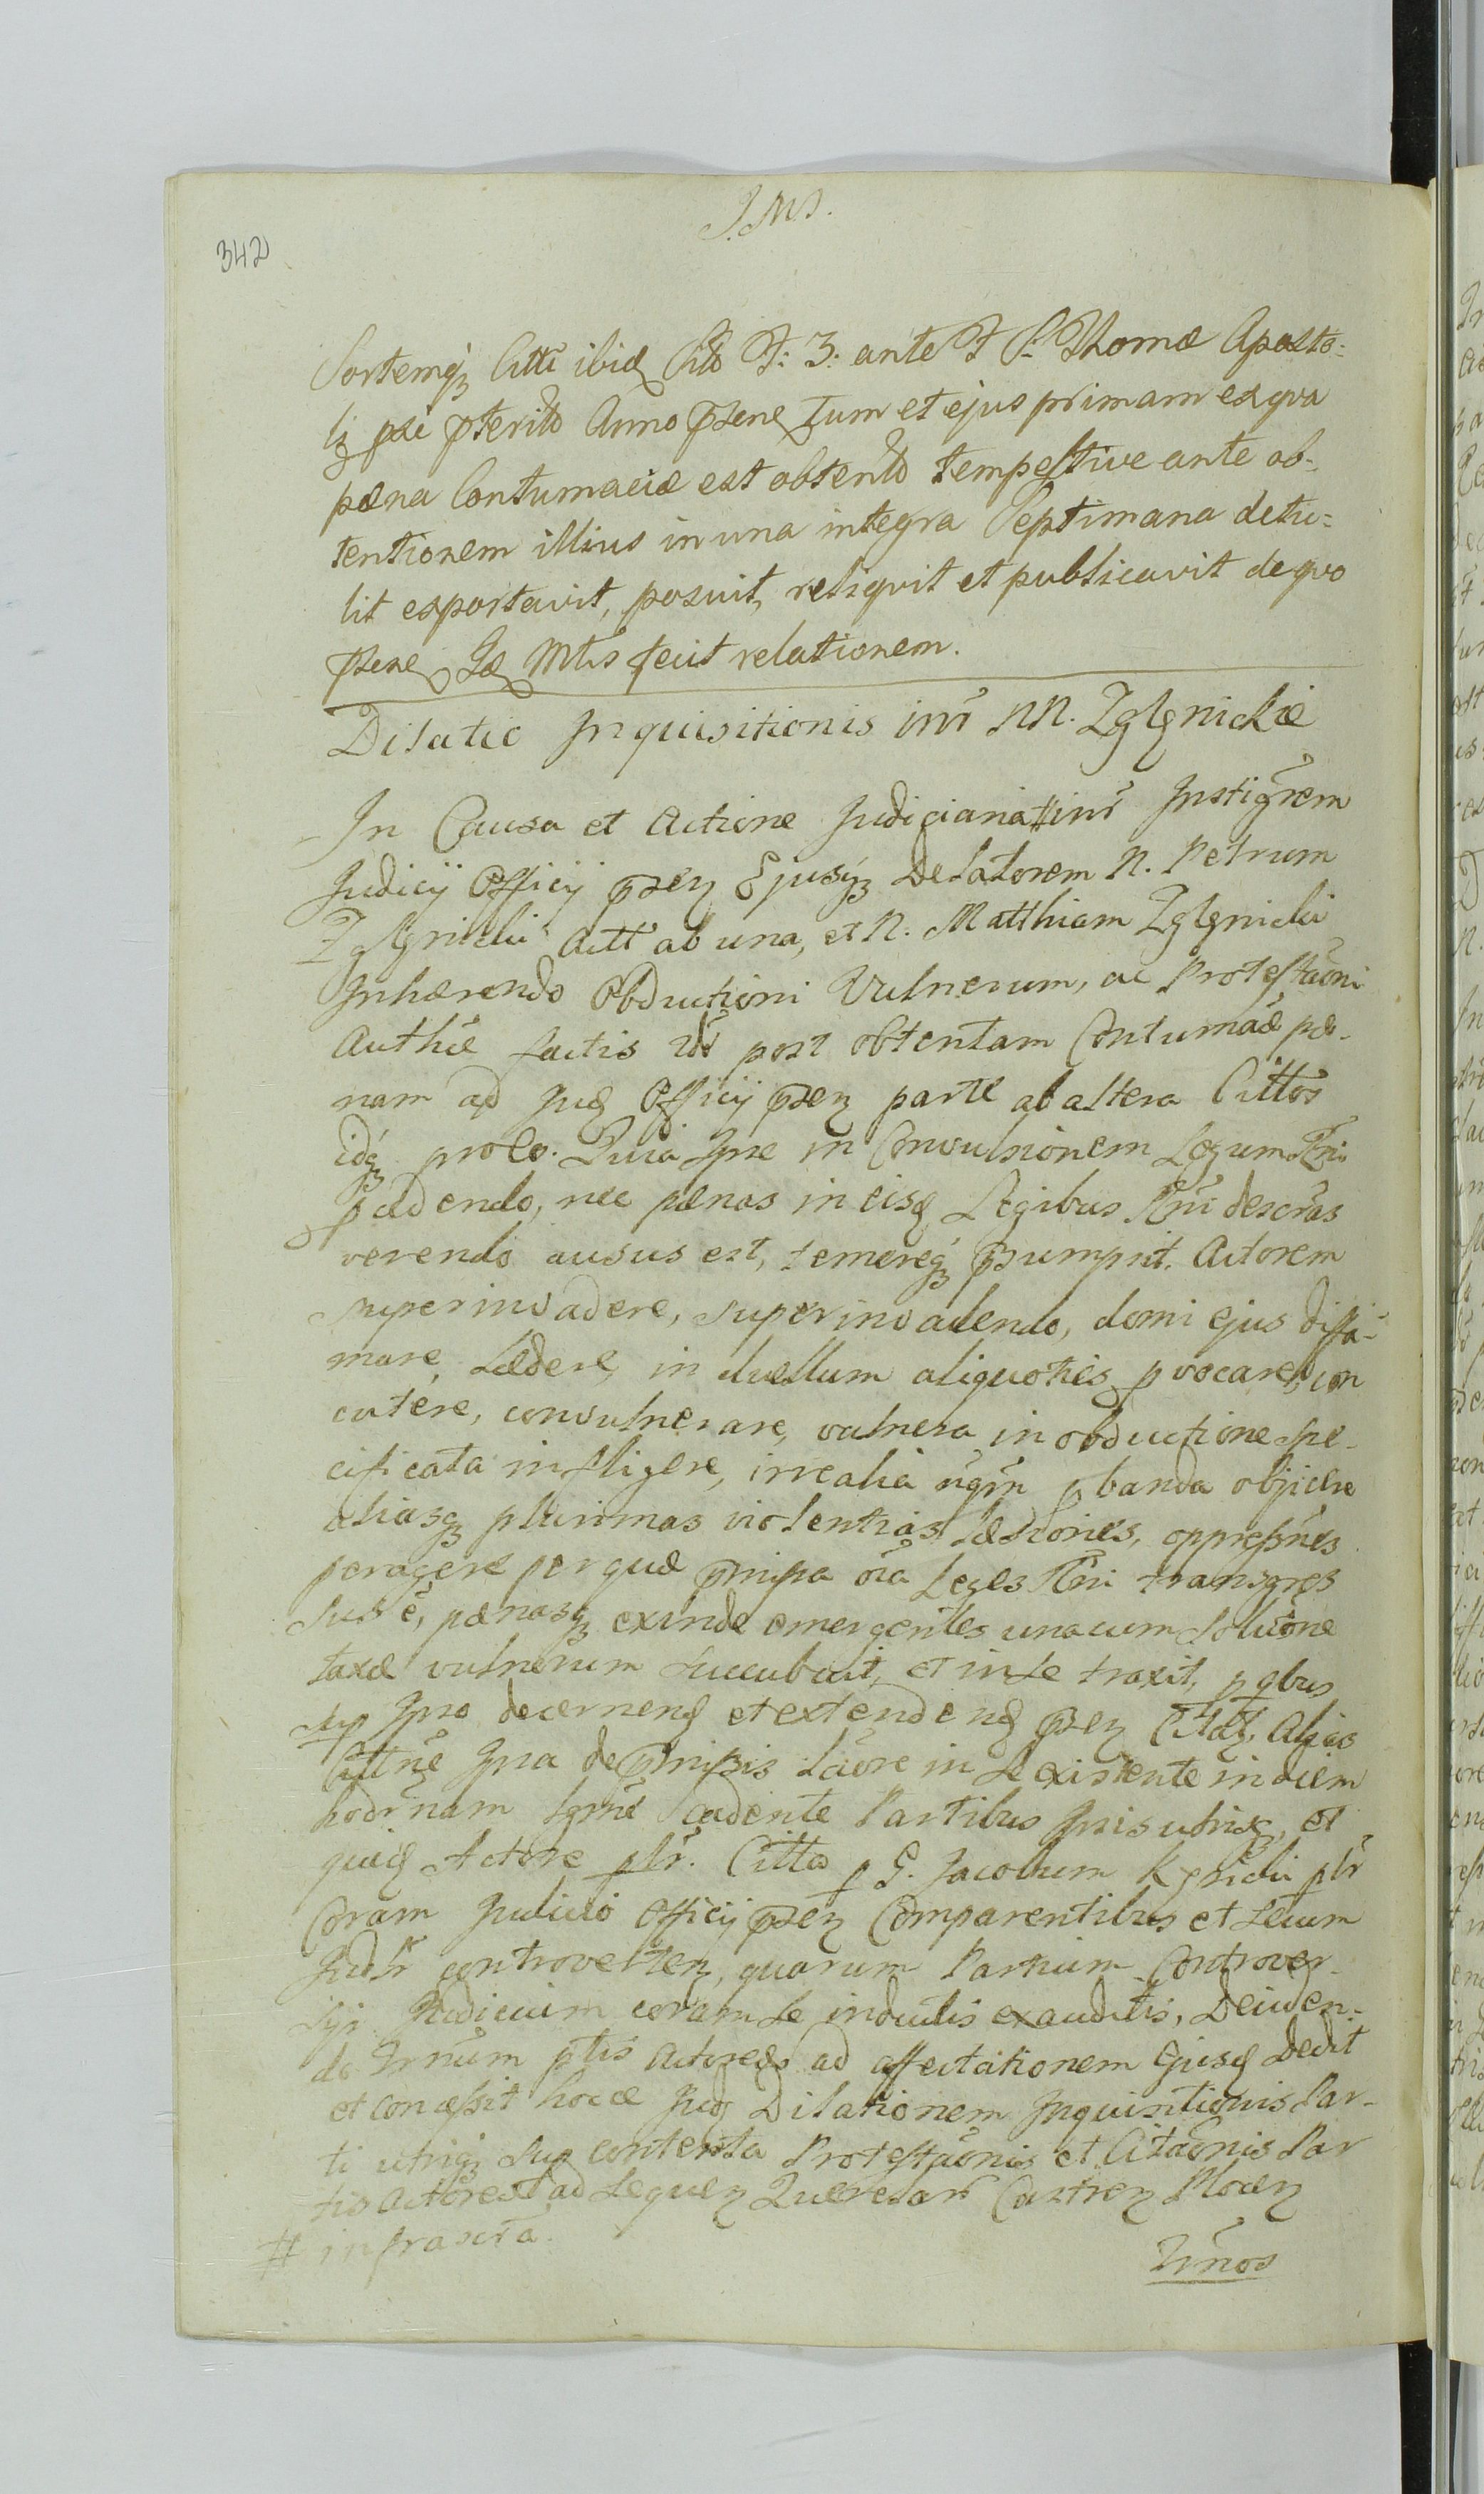 J.M.J.
342
Sortemq; Citti ibid Citto F: 3: ante F S. Thomæ Aposto:
li pxi pterito Anno psene tum et ejus primam ex qva
pæna Contumaciæ est obtento tempestive ante ob-
tentionem illius in una integra Septimana detu:
lit exportavit, posuit, reliqvit et publicavit de qvo
psene Mtis fecit relationem.
Dilatio Inquisitionis intr NN. Zglenickie
In Causa et Actione Judiciaria # intr Instigrem
Judicij Officij psen Ejusq; Delatorem N. Petrum
Zglenicki Actt ab una, et N. Matthiam Zglenicki
Inhærendo Obductioni Vulnerum, ac Protestaoni
Authæ factis post obtentam Contumaæ pæ-
nam ad Jud Officij psen parte ab altera Cittos
idq; pro eo. Quia Ipse in Convulsionem Legum Rni
pcedendo, nec pænas in eisd Legibus Rni descras
verendo ausus est, temereq; psumpsit. Actorem
superinvadere, superinvadendo, domi ejus diffa-
mare, Lædere, in duellum aliquoties pvocare, con
cutere, convulnerare, vulnera in obductione spe-
cificata infligere, irrealia nqm pbanda objicere
aliasq; plurimas violentias Læsiones, oppressnes
peragere per quæ pmissa oia Leges Rni transgres
sus e, pænasq; exinde emergentes unacum Solutione
taxæ vulnerum succubuit, et in se traxit, p qbus
sup Ipso decernend et extendend psen Citat, Alias
Cittne Ipsa de pmissis Latiore in se existente in diem
hodrnam Lgme cadente Partibus Ipsis utrisq, et
quid Actore plr. Citto p G. Jacobum Kęsicki plr
Coram Judicio Officij psen Comparentibus et secum
Judr controverten, quarum Partium Controver-
sijs Judicium coram se inductis exauditis, Deciden-
do Trnum ptis Actoreæ ad affectationem Ejusd Dedit
et concessit hocce Jud Dilationem Inquisitionis Par-
ti utriq; sup contenta Protestaonis et Citaonis Par
tis Actoreæ ad Sequen Querelar Castren Plocen
# infrascra.
Trnos